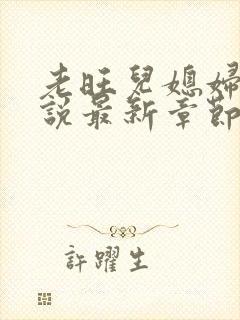 老旺兒媳婦
說最新章節
許躍生